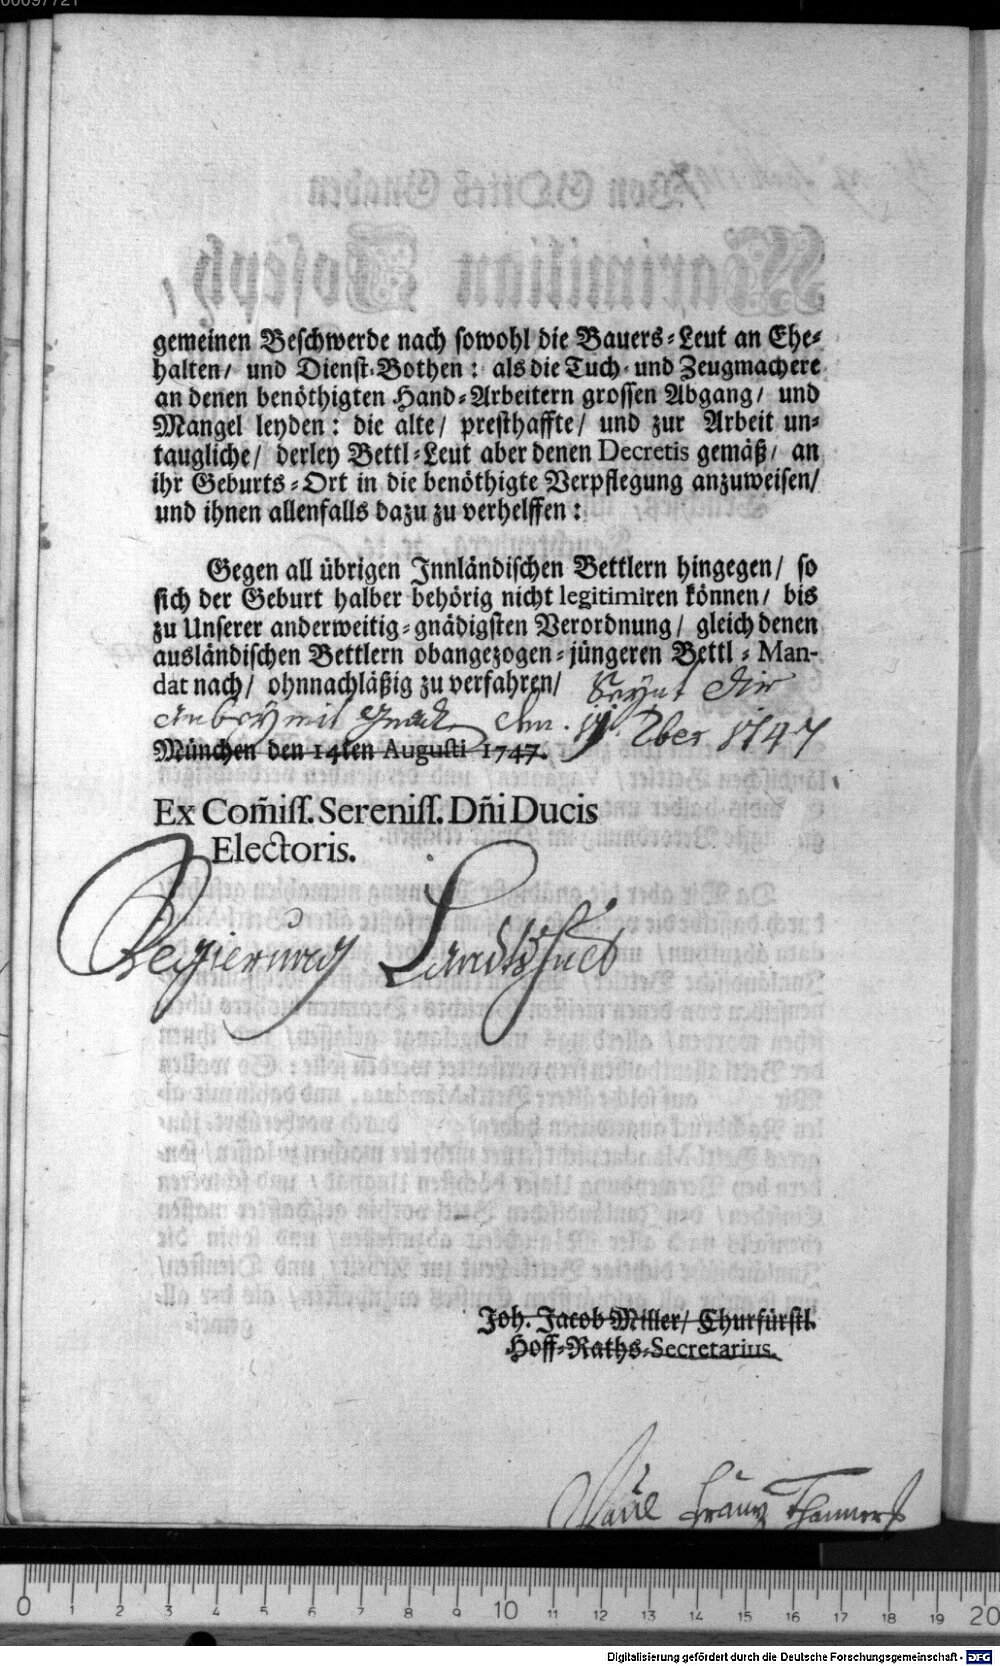 gemeinen Beschwerde nach sowohl die Bauers-Leut an Ehe-
halten/ und Dienst-Bothen: als die Tuch- und Zeugmachere
an denen benöthigten Hand-Arbeitern grossen Abgang/ und
Mangel leyden: die alte/ presthaffte/ und zur Arbeit un-
taugliche/ derley Bettl-Leut aber denen Decretis gemäß/ an
ihr Geburts-Ort in die benöthigte Verpflegung anzuweisen/
und ihnen allenfalls dazu zu verhelffen:
Gegen all übrigen Innländischen Bettlern hingegen/ so
sich der Geburt halber behörig nicht legitimiren können/ bis
zu Unserer anderweitig-gnädigsten Verordnung/ gleich denen
ausländischen Bettlern obangezogen-jüngeren Bettl-Man-
dat nach/ ohnnachläßig zu verfahren/ Seynt dir
anbey mit Gnad. den 7ber 1747
München den 14ten Augusti 1747.
Ex Com̃iſſ. Sereniſſ. Dñi Ducis
Electoris.
Regierung Landtshuet
Joh. Jacob Miller/ Churfürstl.
Hoff-Raths-Secretarius.
Paul Franz
0 1 2 3 4 5 6 7 8 9 10 11 12 13 14 15 16 17 18 19 20
Digitalisierung gefördert durch die Deutsche Forschungsgemeinschaft - DFG